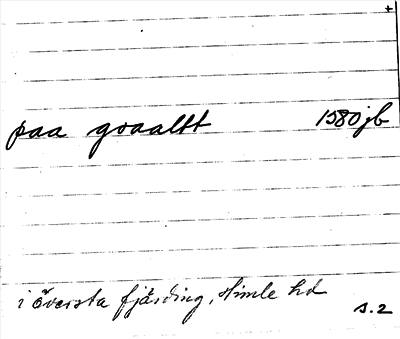 paa graaltt 1580 jb
i översta fjärding, Himle hd
s. 2